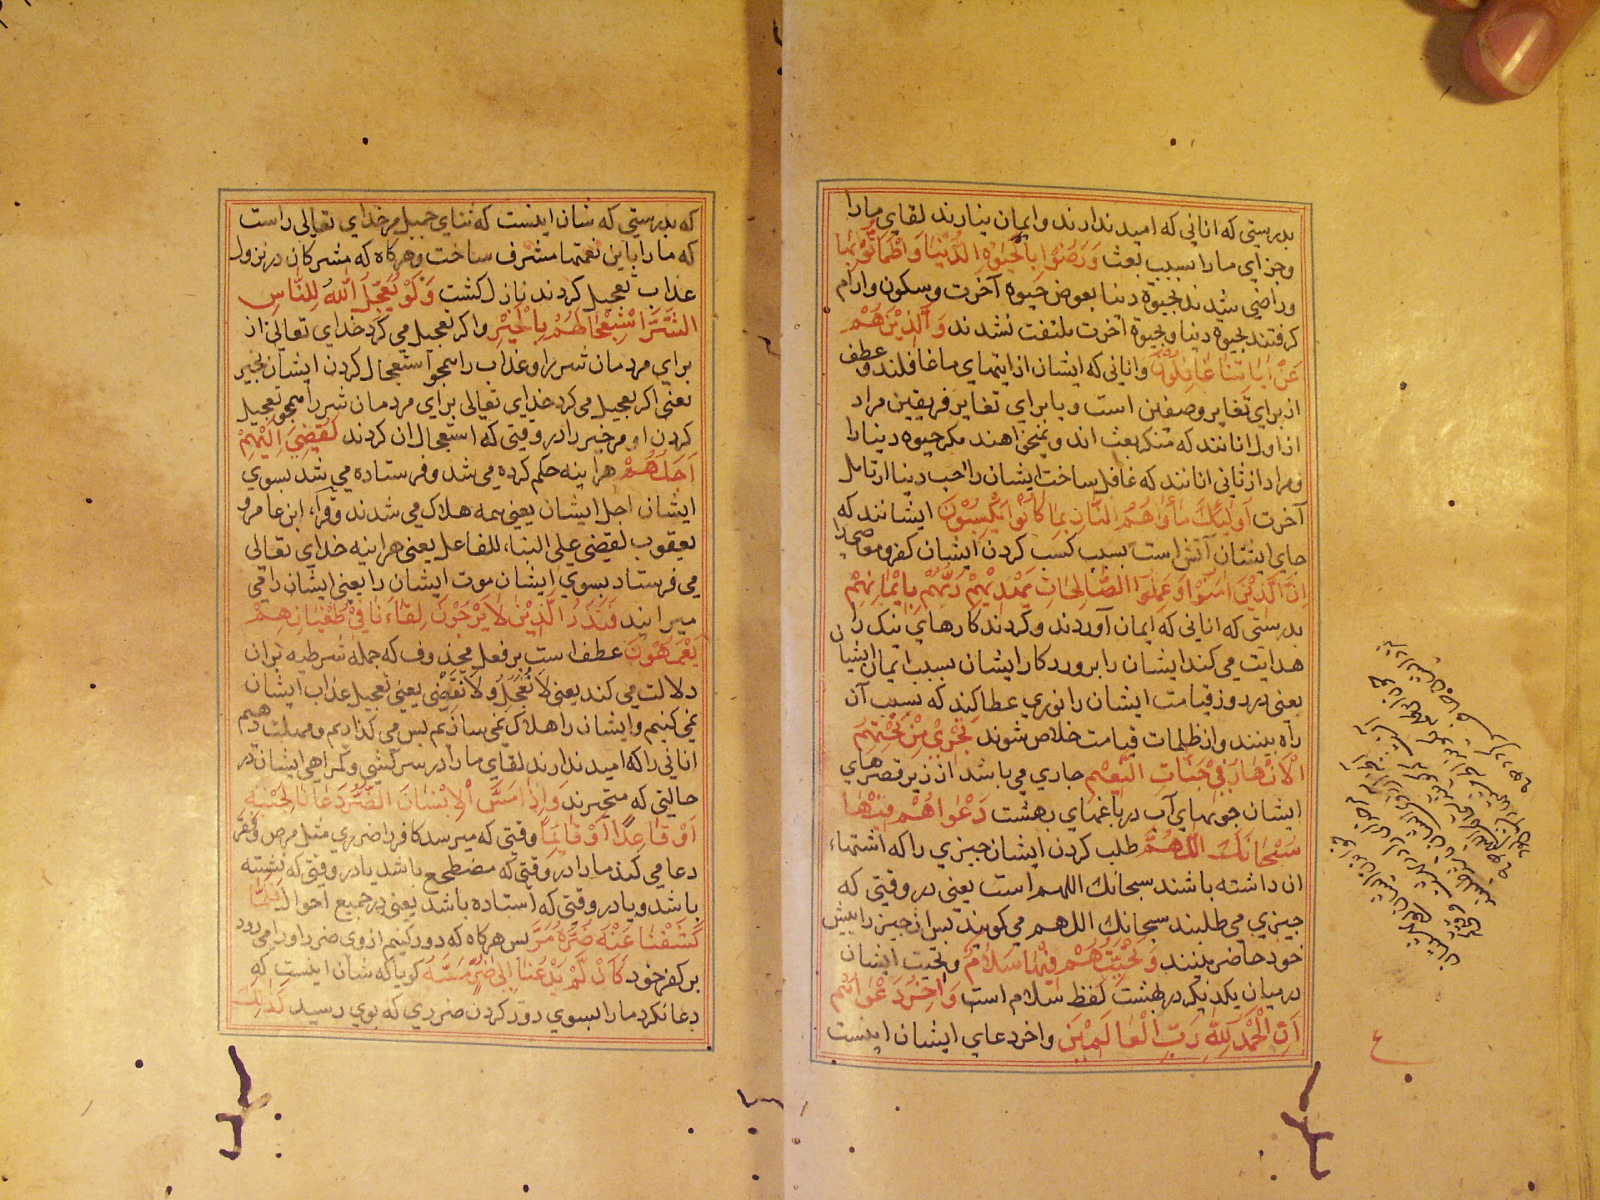 بدرستي که اناني که اميد ندارند وايمان بنارند لقاي مارا
وجزاي مارا بسبب بعث وَرَضُوا بِالْحَيٰوةِ الدُّنْيَا وَاطْمَاَنُّوْا بِهَا
وراضي شدند بحيوة دنيا بعوض حيوة آخرت وسکون وارام
کرفتند بحيوة دنيا وبحيوة آخرت ملتفت نشدند وَالَّذِيْنَ هُمْ
عَنْ اٰيَاتِنَا غَافِلُوْنَ واناني که ايشان از ايتهاي ما غافلند وعطف
از براي تغاير وصفين است ويا براي تغاير فريقين مراد
از اول انانند که منکر بعث اند ونميخواهند مکر حيوة دنيارا
ومراد از ثاني انانند که غافل ساخت ايشان را حب دنيا از تامل
آخرت اُولٰئِكَ مَأْوَاهُمُ النَّارُ بِمَا كَانُوْا يَكْسِبُوْنَ ايشانند که
جاي ايشان آتش است بسبب کسب کردن ايشان کفر ومعاصي را
اِنَّ الَّذِيْنَ اٰمَنُوْا وَعَمِلُوا الصَّالِحَاتِ يَهْدِيْهِمْ رَبُّهُمْ بِاِيْمَانِهِمْ
بدرستي که اناني که ايمان آوردند وکردند کارهاي نيک را
هدايت مي کند ايشان را پروردکار ايشان بسبب ايمان ايشان
يعني در روز قيامت ايشان را نوري عطا کند که بسبب آن
راه بينند واز ظلمات قيامت خلاص شوند تَجْرِيْ مِنْ تَحْتِهِمُ
الْاَنْهَارُ فِيْ جَنَّاتِ النَّعِيْمِ جاري مي باشد از زير قصرهاي
ايشان جويهاي آب در باغهاي بهشت دَعْوَاهُمْ فِيْهَا
سُبْحَانَكَ اللّٰهُمَّ طلب کردن ايشان چيزي را که اشتهاء
ان داشته باشند سبحانك اللهم است يعني در وقتي که
چيزي مي طلبند سبحانك اللهم مي کويند پس ان چيز را پيش
خود حاضر بينند وَتَحِيَّتُهُمْ فِيْهَا سَلَامٌ وتحيت ايشان
در ميان يکديکر در بهشت لفظ سلام است وَاٰخِرُ دَعْوَاهُمْ
اَنِ الْحَمْدُ لِلّٰهِ رَبِّ الْعَالَمِيْنَ واخر دعاي ايشان اينست
ع
که بدرستي که شان اينست که ثناي جميل مر خداي تعالي راست
که مارا باين نعمتها مشرف ساخت وهرکاه که مشرکان در نزول
عذاب تعجيل کردند نازل کشت وَلَوْ يُعَجِّلُ اللّٰهُ لِلنَّاسِ
الشَّرَّ اسْتِعْجَالَهُمْ بِالْخَيْرِ واکر تعجيل مي کرد خداي تعالي از
براي مردمان شر را وعذاب را همچو استعجال کردن ايشان بخير
يعني اکر تعجيل مي کرد خداي تعالي براي مردمان شر را همچو تعجيل
کردن او مر خير را در وقتي که استعجال ان کردند لَقُضِيَ اِلَيْهِمْ
اَجَلُهُمْ هراينه حکم کرده مي شد وفرستاده مي شد بسوي
ايشان اجل ايشان يعني همه هلاک مي شدند وقرا، ابن عامر و
يعقوب لقضي علي البناء للفاعل يعني هراينه خداي تعالي
مي فرستاد بسوي ايشان موت ايشان را يعني ايشان را قي
ميرانيد فَنَذَرُ الَّذِيْنَ لَا يَرْجُوْنَ لِقَاءَنَا فِيْ طُغْيَانِهِمْ
يَعْمَهُوْنَ عطف است بر فعل محذوف که جمله شرطيه بران
دلالت مي کند يعني لا نعجل ولا نقضي يعني تعجيل عذاب ايشان
نمي کنيم وايشان را هلاک نمي سازيم پس مي کذاريم ومهلت دهيم
اناني را که اميد ندارند لقاي مارا در سرکشي وکمراهي ايشان در
حالتي که متحيرند وَاِذَا مَسَّ الْاِنْسَانَ الضُّرُّ دَعَانَا لِجَنْبِهِ
اَوْ قَاعِدًا اَوْ قَائِمًا وقتي که ميرسد کافر را ضرري مثل مرض وفقر
دعا مي کند مارا در وقتي که مضطجع باشد يا در وقتي که نشسته
باشد ويا در وقتي که استاده باشد يعني در جميع احوال فَلَمَّا
كَشَفْنَا عَنْهُ ضُرَّهُ مَرَّ پس هرکاه که دور کنيم از وي ضر را ورا مي رود
بر کفر خود كَاَنْ لَّمْ يَدْعُنَا اِلٰى ضُرٍّ مَسَّهُ کويا که شان اينست که
دعا نکرد مارا بسوي دور کردن ضرري که بوي رسيد كَذٰلِكَ